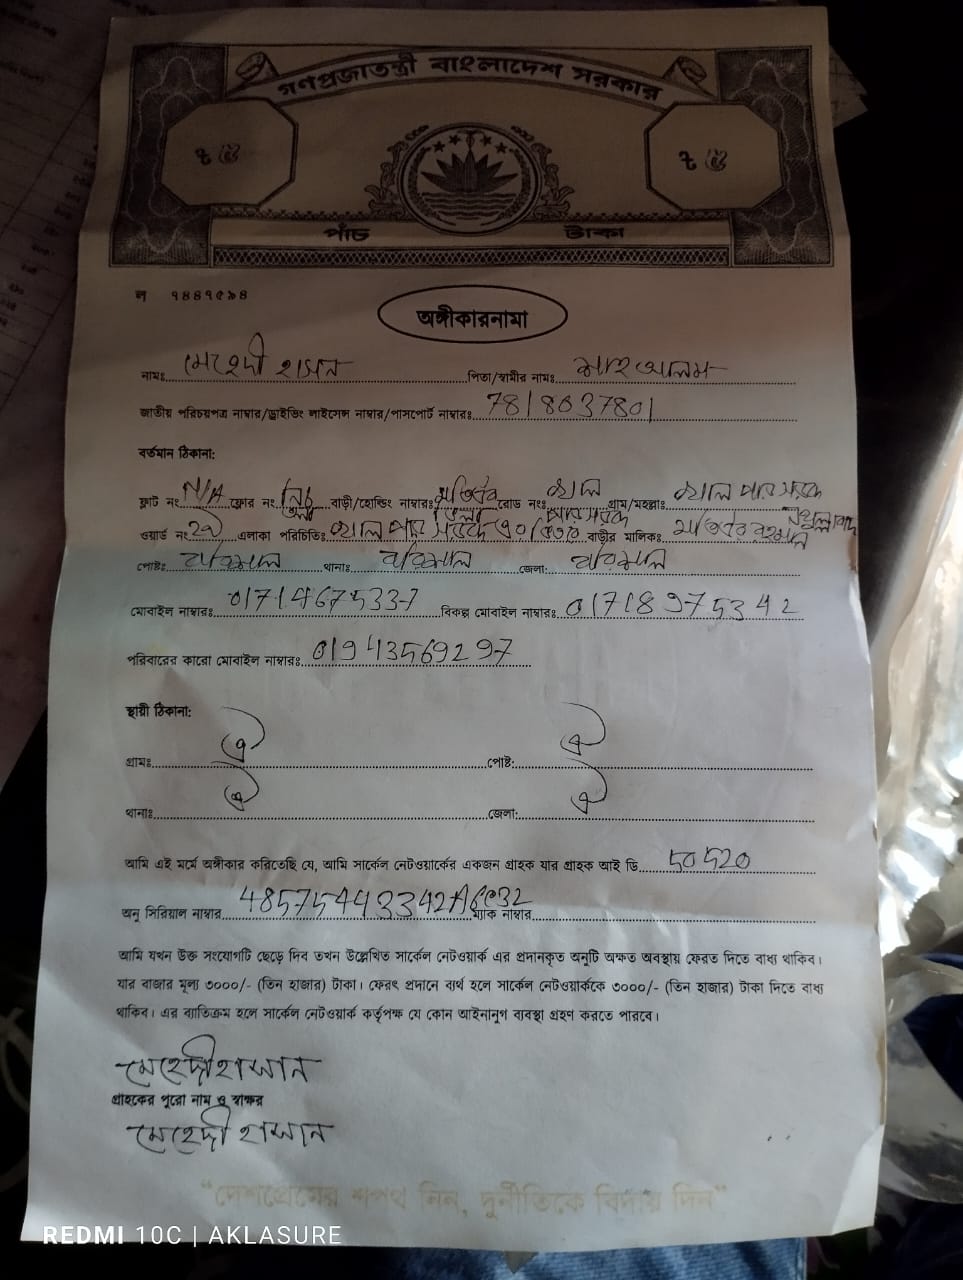 গণপ্রজাতন্ত্রী বাংলাদেশ সরকার
৳ ৫ ৳ ৫
পাঁচ টাকা
ল ৭৪৪৭৫৯৪
অঙ্গীকারনামা
নামঃ মেহেদী হাসান পিতা/স্বামীর নামঃ শাহ আলম
জাতীয় পরিচয়পত্র নাম্বার/ড্রাইভিং লাইসেন্স নাম্বার/পাসপোর্ট নাম্বারঃ 7818037801
বর্তমান ঠিকানা:
ফ্লাট নং N/A ফ্লোর নং বাড়ী/হোল্ডিং নাম্বারঃ রোড নংঃ খাল পার সড়ক গ্রাম/মহল্লাঃ খাল পার সড়ক
ওয়ার্ড নং এলাকা পরিচিতিঃ খাল পার সড়ক বাড়ীর মালিকঃ মতিউর রহমান
পোষ্টঃ বরিশাল থানাঃ বরিশাল জেলা: বরিশাল
মোবাইল নাম্বারঃ 01714675337 বিকল্প মোবাইল নাম্বারঃ 01718975342
পরিবারের কারো মোবাইল নাম্বারঃ 01943569297
স্থায়ী ঠিকানা:
গ্রামঃ ঐ পোষ্ট: ঐ
থানাঃ ঐ জেলা: ঐ
আমি এই মর্মে অঙ্গীকার করিতেছি যে, আমি সার্কেল নেটওয়ার্কের একজন গ্রাহক যার গ্রাহক আই ডি 50520
অনু সিরিয়াল নাম্বার ম্যাক নাম্বার
আমি যখন উক্ত সংযোগটি ছেড়ে দিব তখন উল্লেখিত সার্কেল নেটওয়ার্ক এর প্রদানকৃত অনুটি অক্ষত অবস্থায় ফেরত দিতে বাধ্য থাকিব।
যার বাজার মূল্য ৩০০০/- (তিন হাজার) টাকা। ফেরৎ প্রদানে ব্যর্থ হলে সার্কেল নেটওয়ার্ককে ৩০০০/- (তিন হাজার) টাকা দিতে বাধ্য
থাকিব। এর ব্যতিক্রম হলে সার্কেল নেটওয়ার্ক কর্তৃপক্ষ যে কোন আইনানুগ ব্যবস্থা গ্রহণ করতে পারবে।
মেহেদী হাসান
গ্রাহকের পুরো নাম ও স্বাক্ষর
মেহেদী হাসান
“দেশপ্রেমের শপথ নিন, দুর্নীতিকে বিদায় দিন”
REDMI 10C | AKLASURE